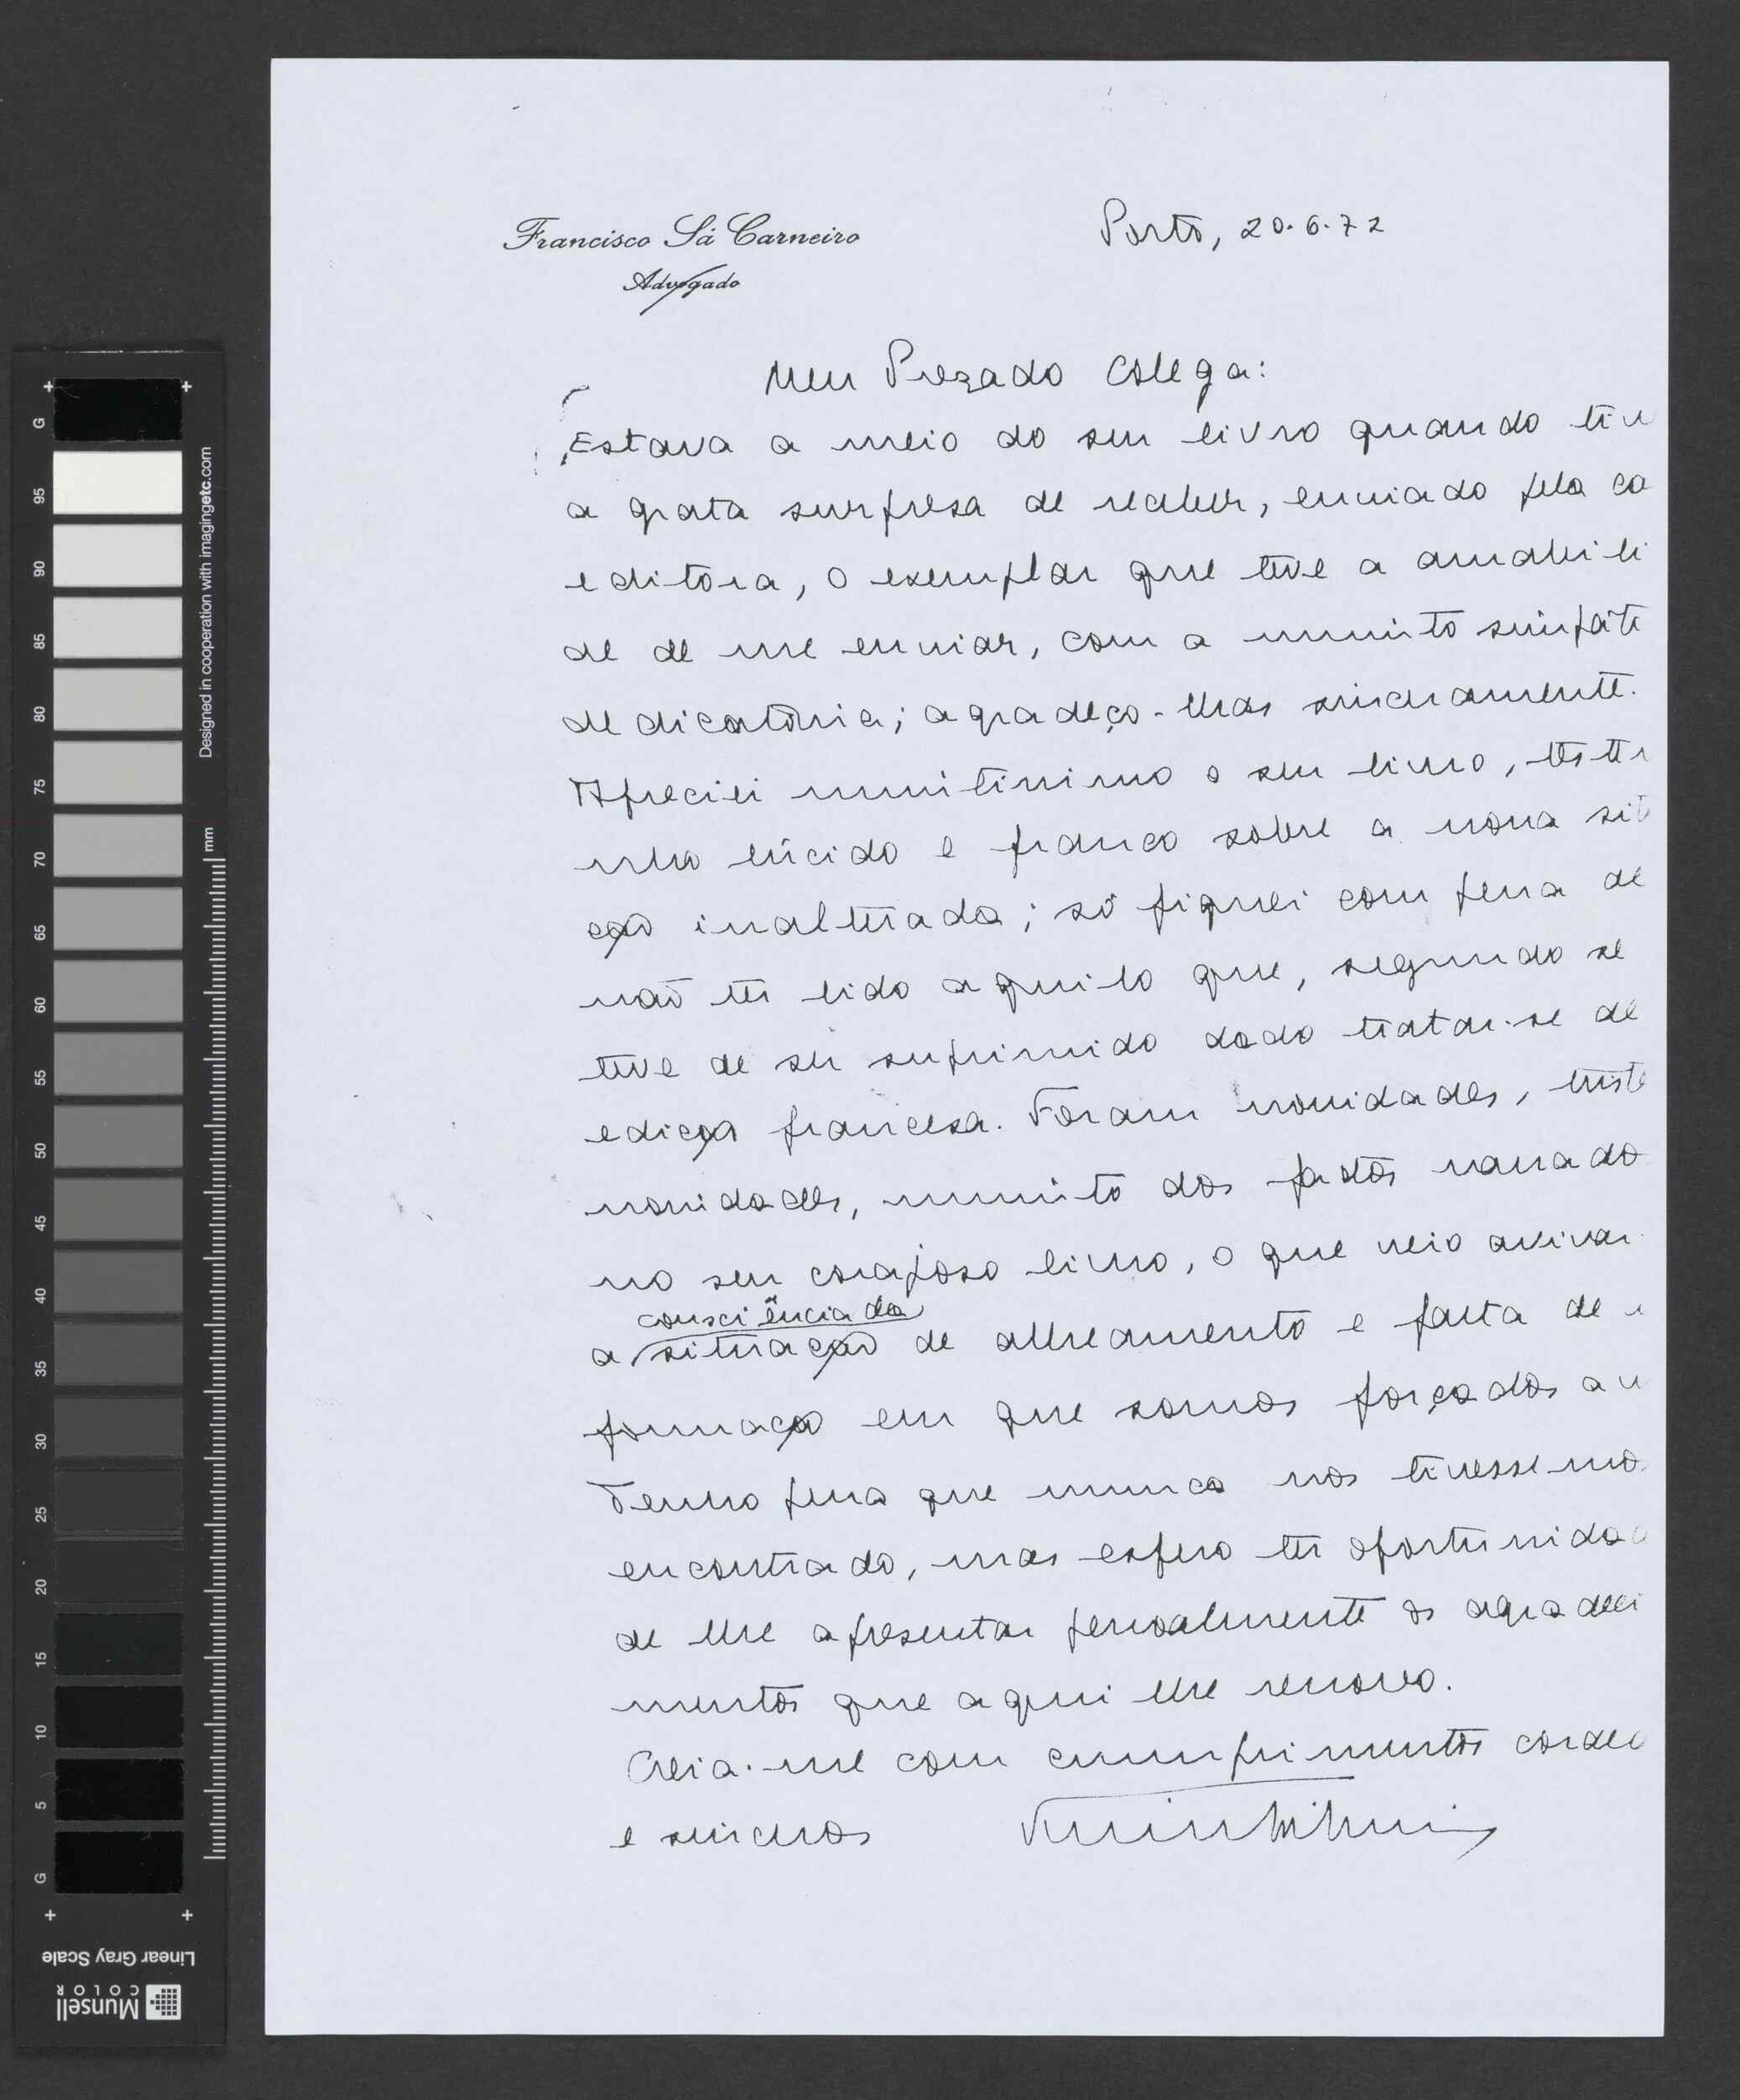 Francisco Sá Carneiro
Advogado
Porto, 20.6.72
Meu Prezado Colega:
Estava a meio do seu livro quando tiv
a grata surpresa de receber, enviado pela ca
editora, o exemplar que teve a amabili
de de me enviar, com a muito simpáti
dedicatória; agradeço-lhas sinceramente.
Apreciei muitissimo o seu livro, teste
nho lúcido e franco sobre a nossa sit
ção inalterada; só fiquei com pena de
não ter lido aquilo que, segundo se
teve de ser suprimido dado tratar-se de
edição francesa. Foram novidades, triste
novidades, muito dos factos narrado
no seu corajoso livro, o que veio avivar
consciência da
a situação de alheamento e falta de i
formação em que somos forçados a v
Tenho pena que nunca nos tivessemo
encontrado, mas espero ter oportunidad
de lhe apresentar pessoalmente os agradeci
mentos que aqui lhe renovo.
Creia-me com cumprimentos cordea
e sinceros
Designed in cooperation with imagingetc.com
mm
G
95
90
85
80
75
70
65
60
55
50
45
40
35
30
25
20
15
10
5
G
Linear Gray Scale
Munsell
COLOR